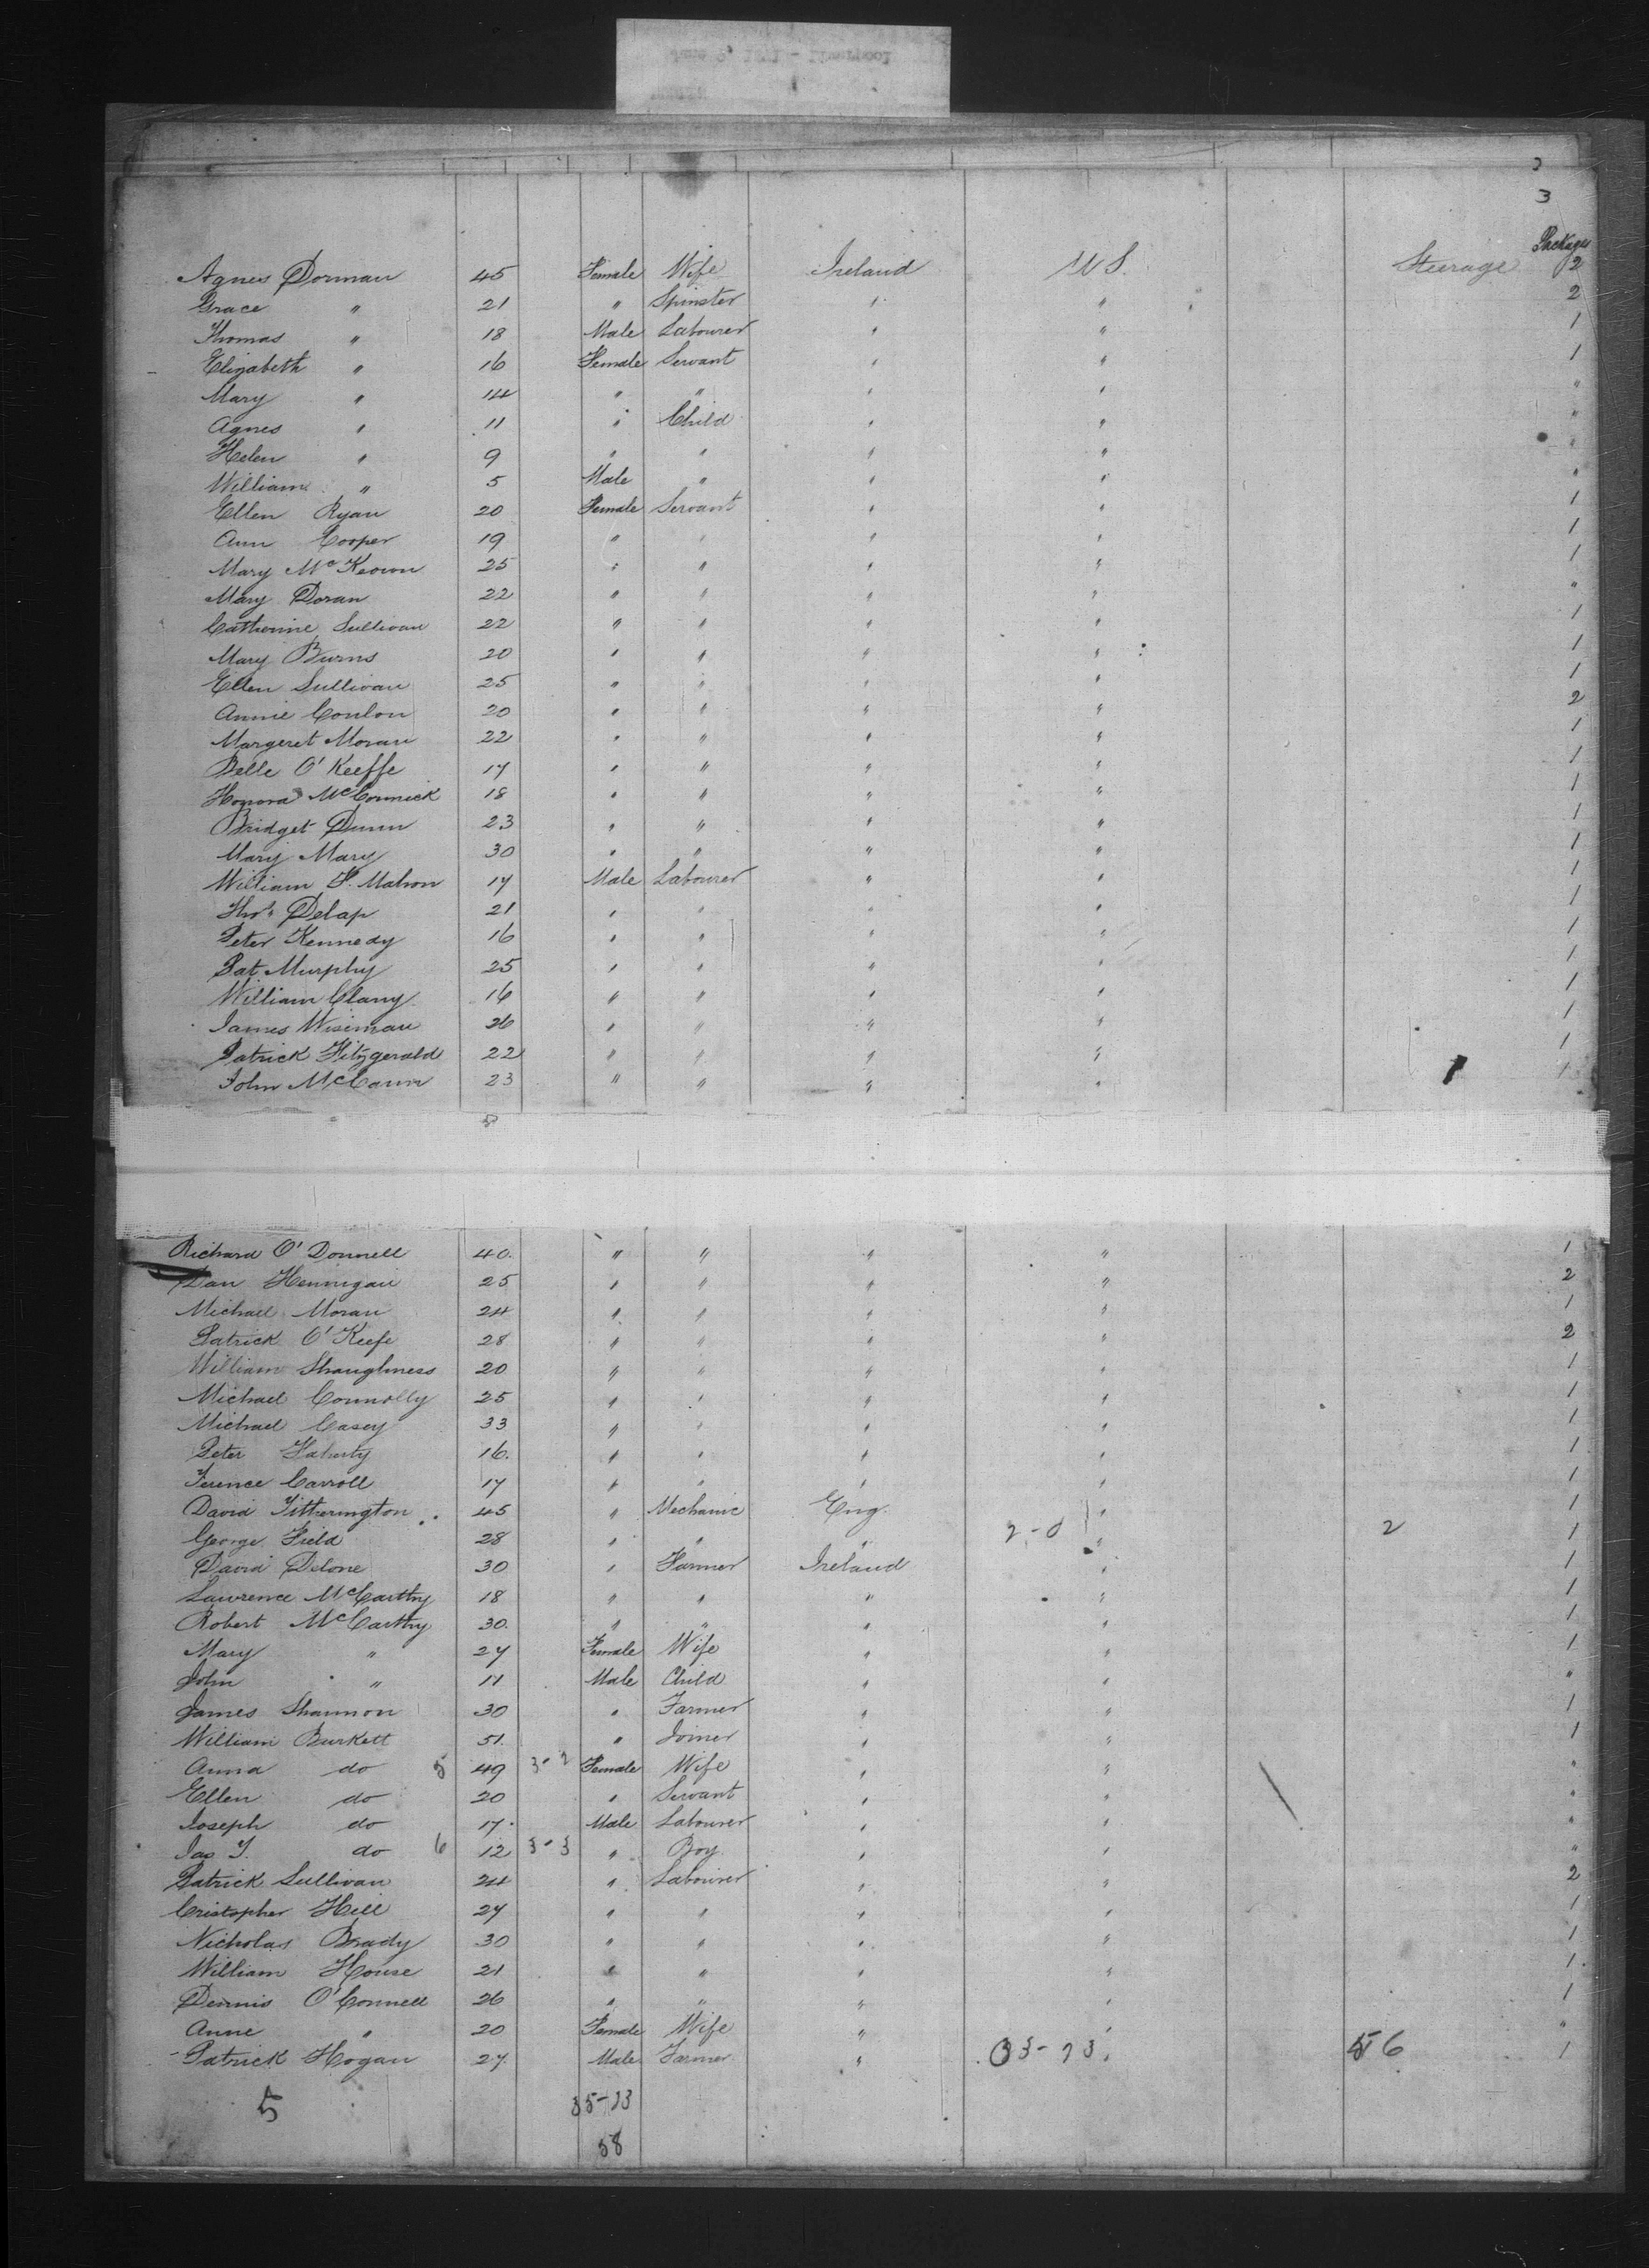 3
Packages
Agnes Dorman 45 Female Wife Ireland U S. Steerage 2
Grace " 21 " Spinster " " 2
Thomas " 18 Male Labourer " " 1
Elizabeth " 16 Female Servant " " 1
Mary " 14 " " " " "
Agnes " 11 " Child " " "
Helen " 9 " " " " "
William " 5 Male " " " "
Ellen Ryan 20 Female Servant " " 1
Ann Cooper 19 " " " " 1
Mary McKeown 25 " " " " 1
Mary Doran 22 " " " " "
Catherine Sullivan 22 " " " " 1
Mary Burns 20 " " " " 1
Ellen Sullivan 25 " " " " 1
Annie Conlon 20 " " " " 2
Margeret Moran 22 " " " " 1
Belle O'Keeffe 17 " " " " 1
Honora McCormick 18 " " " " 1
Bridget Dunn 23 " " " " 1
Mary Mary 30 " " " " 1
William F. Mahon 17 Male Labourer " " 1
Thos Delap 21 " " " " 1
Peter Kennedy 16 " " " " 1
Pat Murphy 25 " " " " 1
William Clany 16 " " " " 1
James Wiseman 26 " " " " 1
Patrick Fitzgerald 22 " " " " 1
John McCann 23 " " " " 1
Richard O'Donnell 40. " " " " 1
Dan Hennigan 25 " " " " 2
Michael Moran 24 " " " " 1
Patrick O'Keefe 28 " " " " 2
William Shaughness 20 " " " " 1
Michael Connolly 25 " " " " 1
Michael Casey 33 " " " " 1
Peter Faherty 16. " " " " 1
Terence Carroll 17 " " " " 1
David Titherington 45 " Mechanic Eng. " 1
George Field 28 " " " 2-0 " 2 1
David Delone 30 " Farmer Ireland " 1
Lawrence McCarthy 18 " " " " 1
Robert McCarthy 30. " " " " 1
Mary " 27 Female Wife " " 1
John " 11 Male Child " " "
James Shannon 30 " Farmer " " 1
William Burkett 51. " Joiner " " 1
Anna do 5 49 3-2 Female Wife " " "
Ellen do 20 " Servant " " "
Joseph do 17. Male Labourer " " "
Jas T. do 6 12 3-3 " Boy " " "
Patrick Sullivan 24 " Labourer " " 2
Cristopher Hill 27 " " " " 1
Nicholas Brady 30 " " " " 1
William House 21 " " " " 1
Dennis O'Connell 26 " " " " 1
Anne " 20 Female Wife " " "
Patrick Hogan 27. Male Farmer " 33-23 " 56 1
5 35-23
58